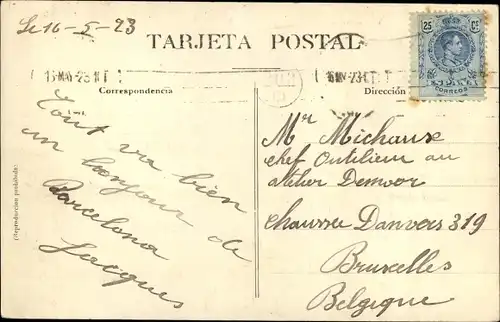 Le 16-5-23
TARJETA POSTAL
25 Cs
CORREOS
16 MAY 23 11
16 MAY 23 11
Correspondencia
Dirección
Tout va bien
un bonjour de
Barcelona
Jacques
Mr Michaux
chef Outilieur au
atelier Demoor
Chaussee Danvers 319
Bruxelles
Belgique
(Reproduccion prohibida)